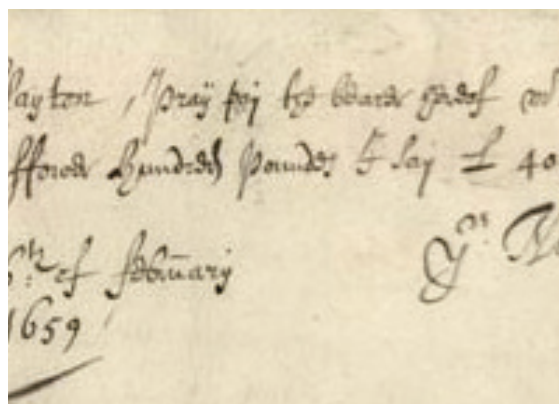 layton , Pray pay the bearer hereof mr
ffower hundred pounds I say £ 40
6th of february
1659